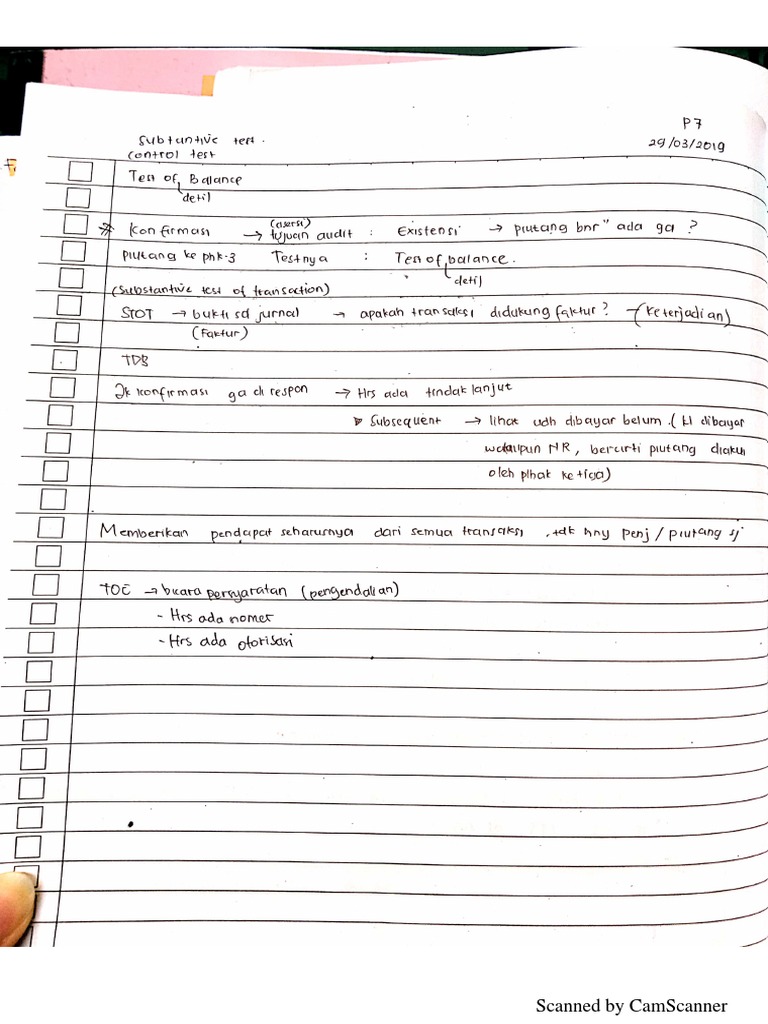 P7
29/03/2019
Subtantive test.
Control test
Test of Balance
detil
Konfirmasi → (asersi) tujuan audit : Existensi → piutang bnr" ada ga ?
piutang ke phk-3 Testnya : Test of balance.
detil
(Substantive test of transaction)
STOT → bukti sd jurnal → apakah transaksi didukung faktur? → (keterjadian)
(faktur)
TDB
Jk konfirmasi ga di respon → Hrs ada tindak lanjut
▷ Subsequent → lihat udh dibayar belum. (kl dibayar
walaupun NR, berarti piutang diakui
oleh pihak ketiga)
Memberikan pendapat seharusnya dari semua transaksi, tdk hny penj / piutang sj
TOC → bicara persyaratan (pengendalian)
- Hrs ada nomer
- Hrs ada otorisasi
Scanned by CamScanner